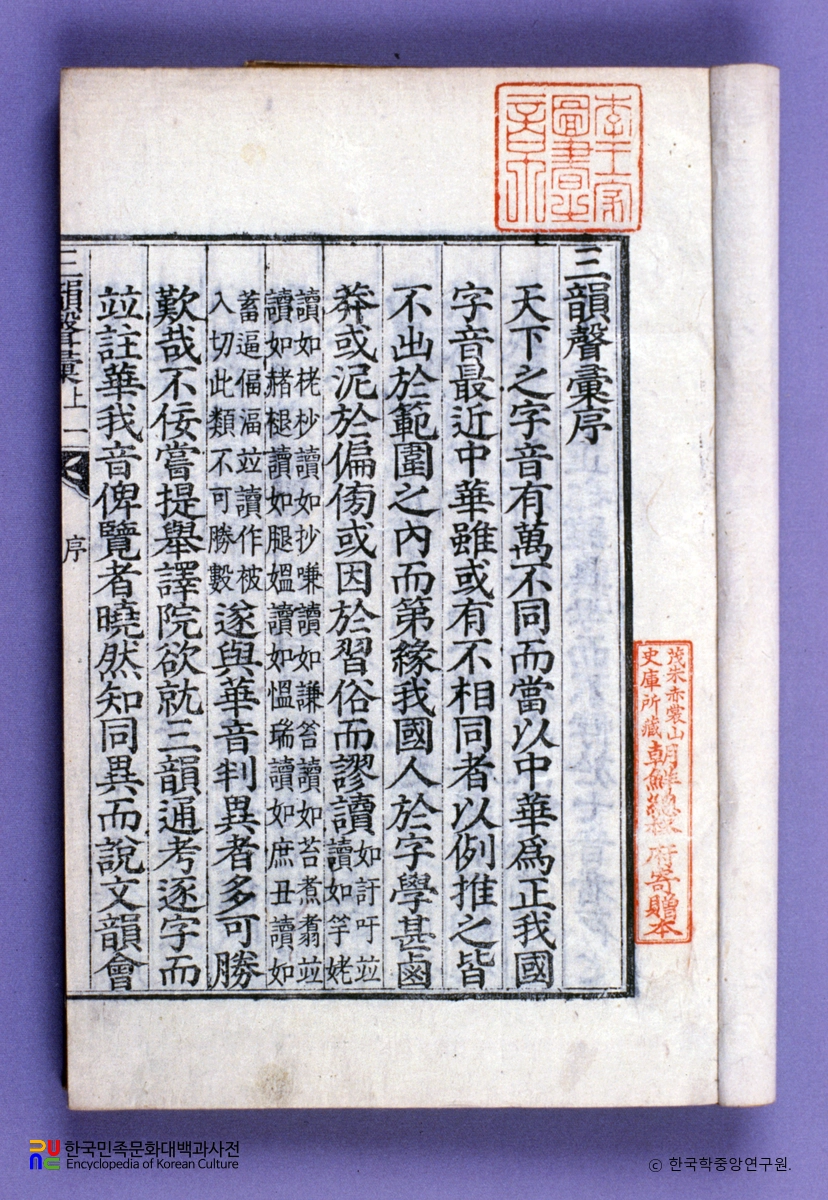 李王家圖書之章
茂朱赤裳山
史庫所藏
朝鮮總督府寄贈本
三韻聲彙序
天下之字音有萬不同而當以中華爲正我國
字音最近中華雖或有不相同者以例推之皆
不出於範圍之內而第緣我國人於字學甚鹵
莽或泥於偏傍或因於習俗而謬讀如訏吁竝
讀如竽姥
讀如栳杪讀如抄嗛讀如謙笞讀如苔煮翥竝
讀如赭褪讀如腿媼讀如慍瑞讀如庶丑讀如
蓄逼偪湢竝讀作被
入切此類不可勝數遂與華音判異者多可勝
歎哉不佞嘗提舉譯院欲就三韻通考逐字而
竝註華我音俾覽者曉然知同異而說文韻會
三韻聲彙上一
序
한국민족문화대백과사전
Encyclopedia of Korean Culture
© 한국학중앙연구원.